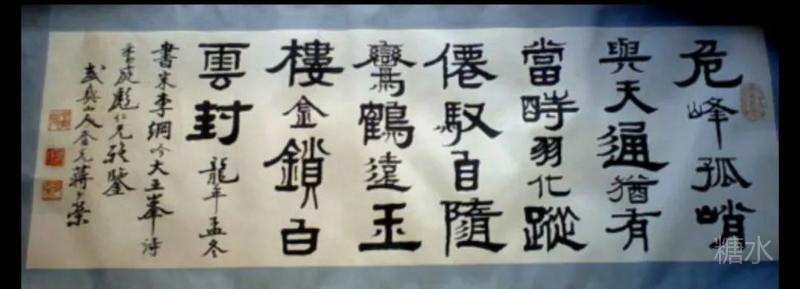 危峰孤峭
與天通猶有
當時羽化蹤
僊馭自隨
鸞鶴遠玉
樓金鎖白
雲封
龍年孟冬
書宋李綱吟大王峯詩
彪仁兄雅鑒
武夷山人
糖水